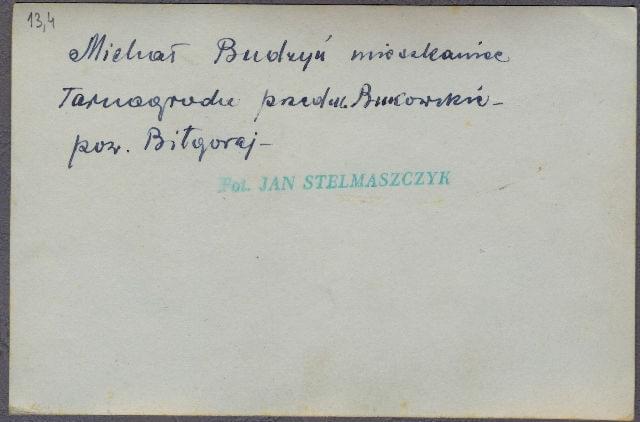 13,4
Michał Budzyń mieszkaniec
Tarnogrodu przedm. Bukowskie –
pow. Biłgoraj –
Fot. JAN STELMASZCZYK